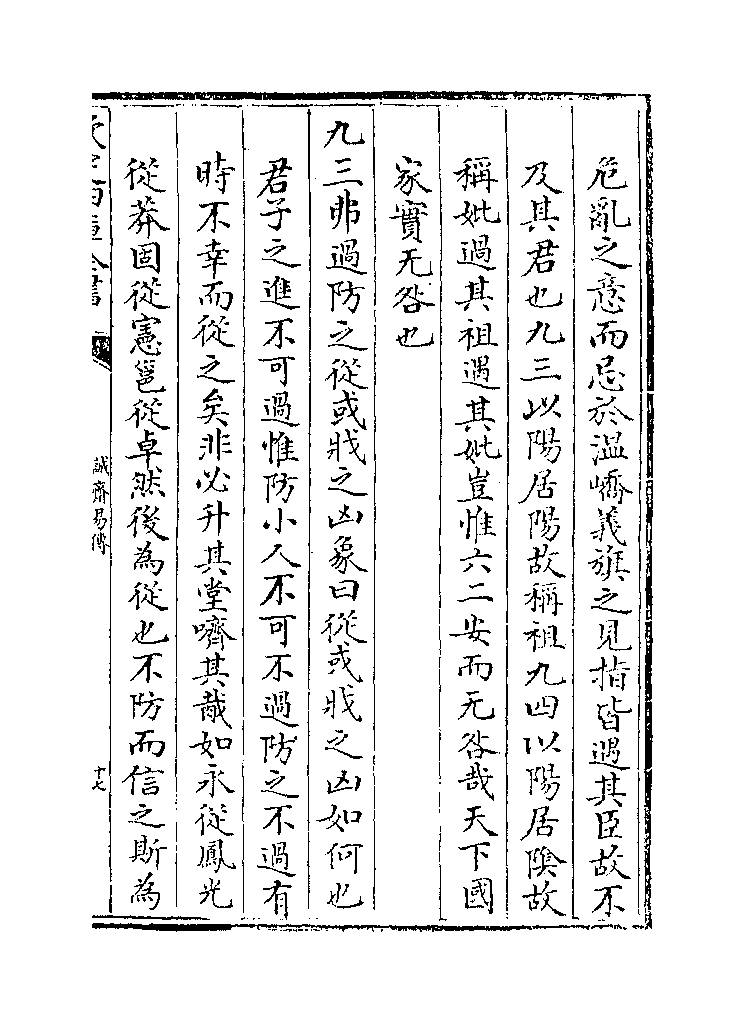 危亂之意而忌於溫嶠義旗之見指皆遇其臣故不
及其君也九三以陽居陽故稱祖九四以陽居隂故
稱妣過其祖遇其妣豈惟六二安而无咎哉天下國
家實无咎也
九三弗過防之從或戕之凶象曰從或戕之凶如何也
君子之進不可過惟防小人不可不過防之不過有
時不幸而從之矣非必升其堂嚌其胾如永從鳳光
從莽固從憲邕從卓然後為從也不防而信之斯為
欽定四庫全書
誠齋易傳
十七